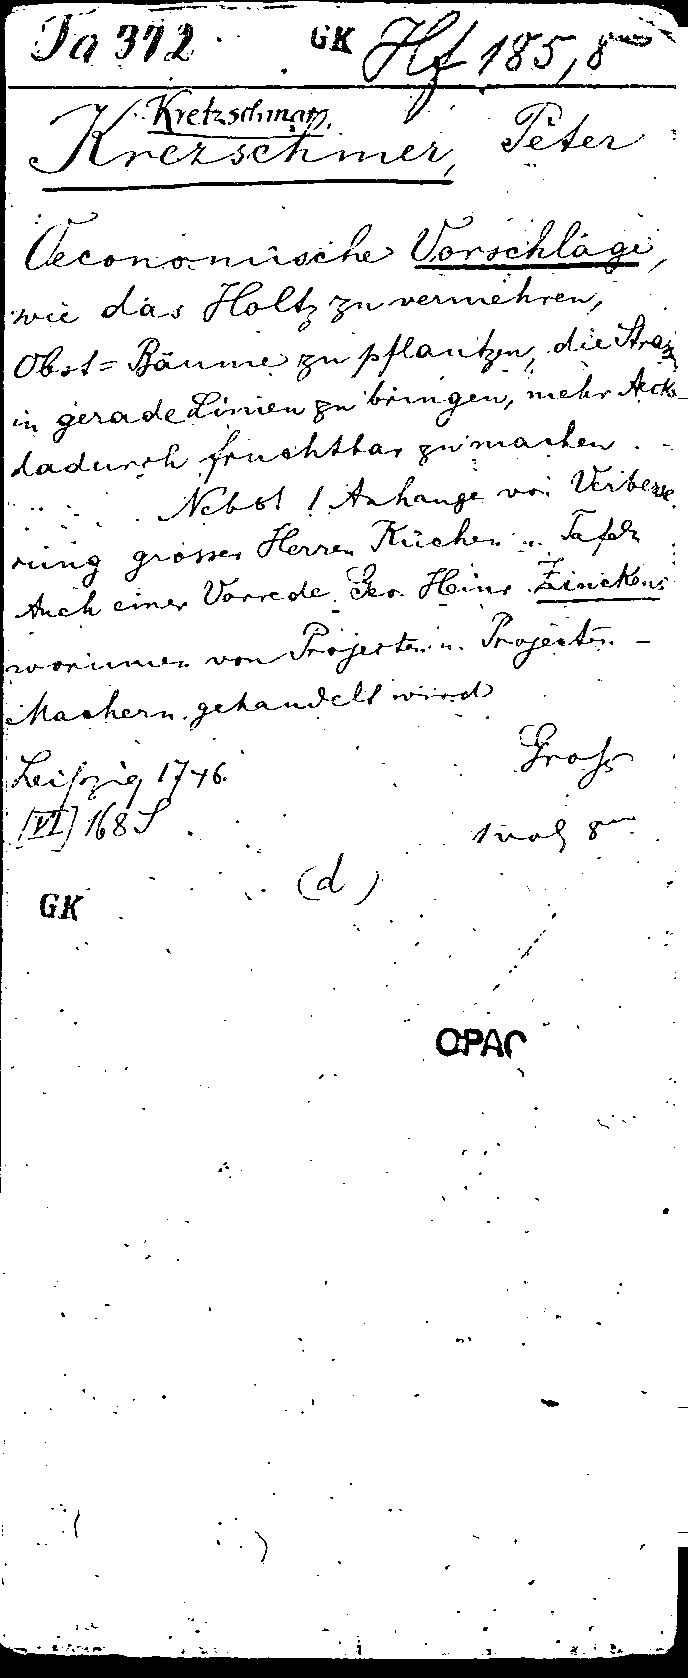 Ta 372 GK Hf 185, 8°
Kretzschmar,
Krezschmer, Peter
Oeconomische Vorschläge,
wie das Holtz zu vermehren,
Obst=Bäume zu pflantzen, die
in gerade Linien zu bringen, mehr
dadurch fruchtbar zu machen.
Nebst 1 Anhange von Verbesse
rung grosser Herren Küchen u. Tafeln
Auch einer Vorrede Geo. Heinr. Zinckens
worinnen von Projecten u. Projecten-
Machern gehandelt wird
Leipzig 1746.
[VI] 168 S
1 vol 8°
(d)
GK
OPAC